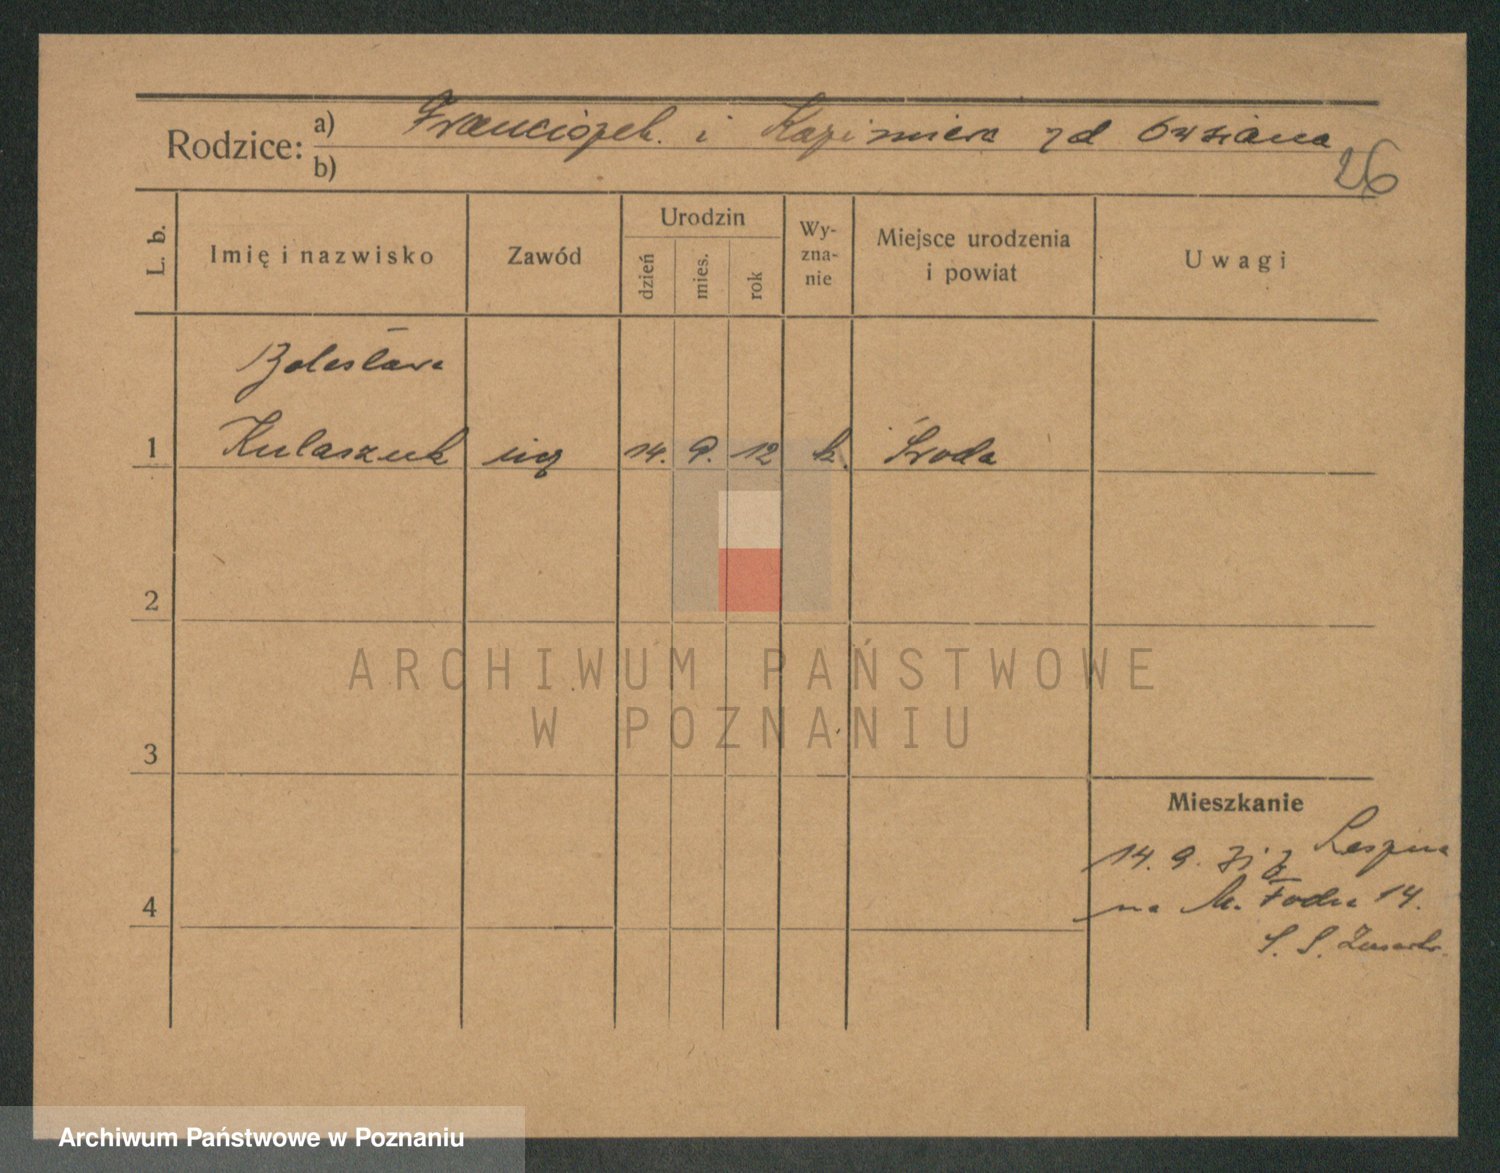 Rodzice: a) Franciszek i Kazimiera zd
b)
26
L. b.
Imię i nazwisko
Zawód
Urodzin
dzień
mies.
rok
Wy-
zna-
nie
Miejsce urodzenia
i powiat
Uwagi
Bolesław
1 Kulaszuk ucz 14. 9. 12 k. Środa
2
3
4
Mieszkanie
14. 9. z
na 14.
S. S.
ARCHIWUM PAŃSTWOWE
W POZNANIU
Archiwum Państwowe w Poznaniu